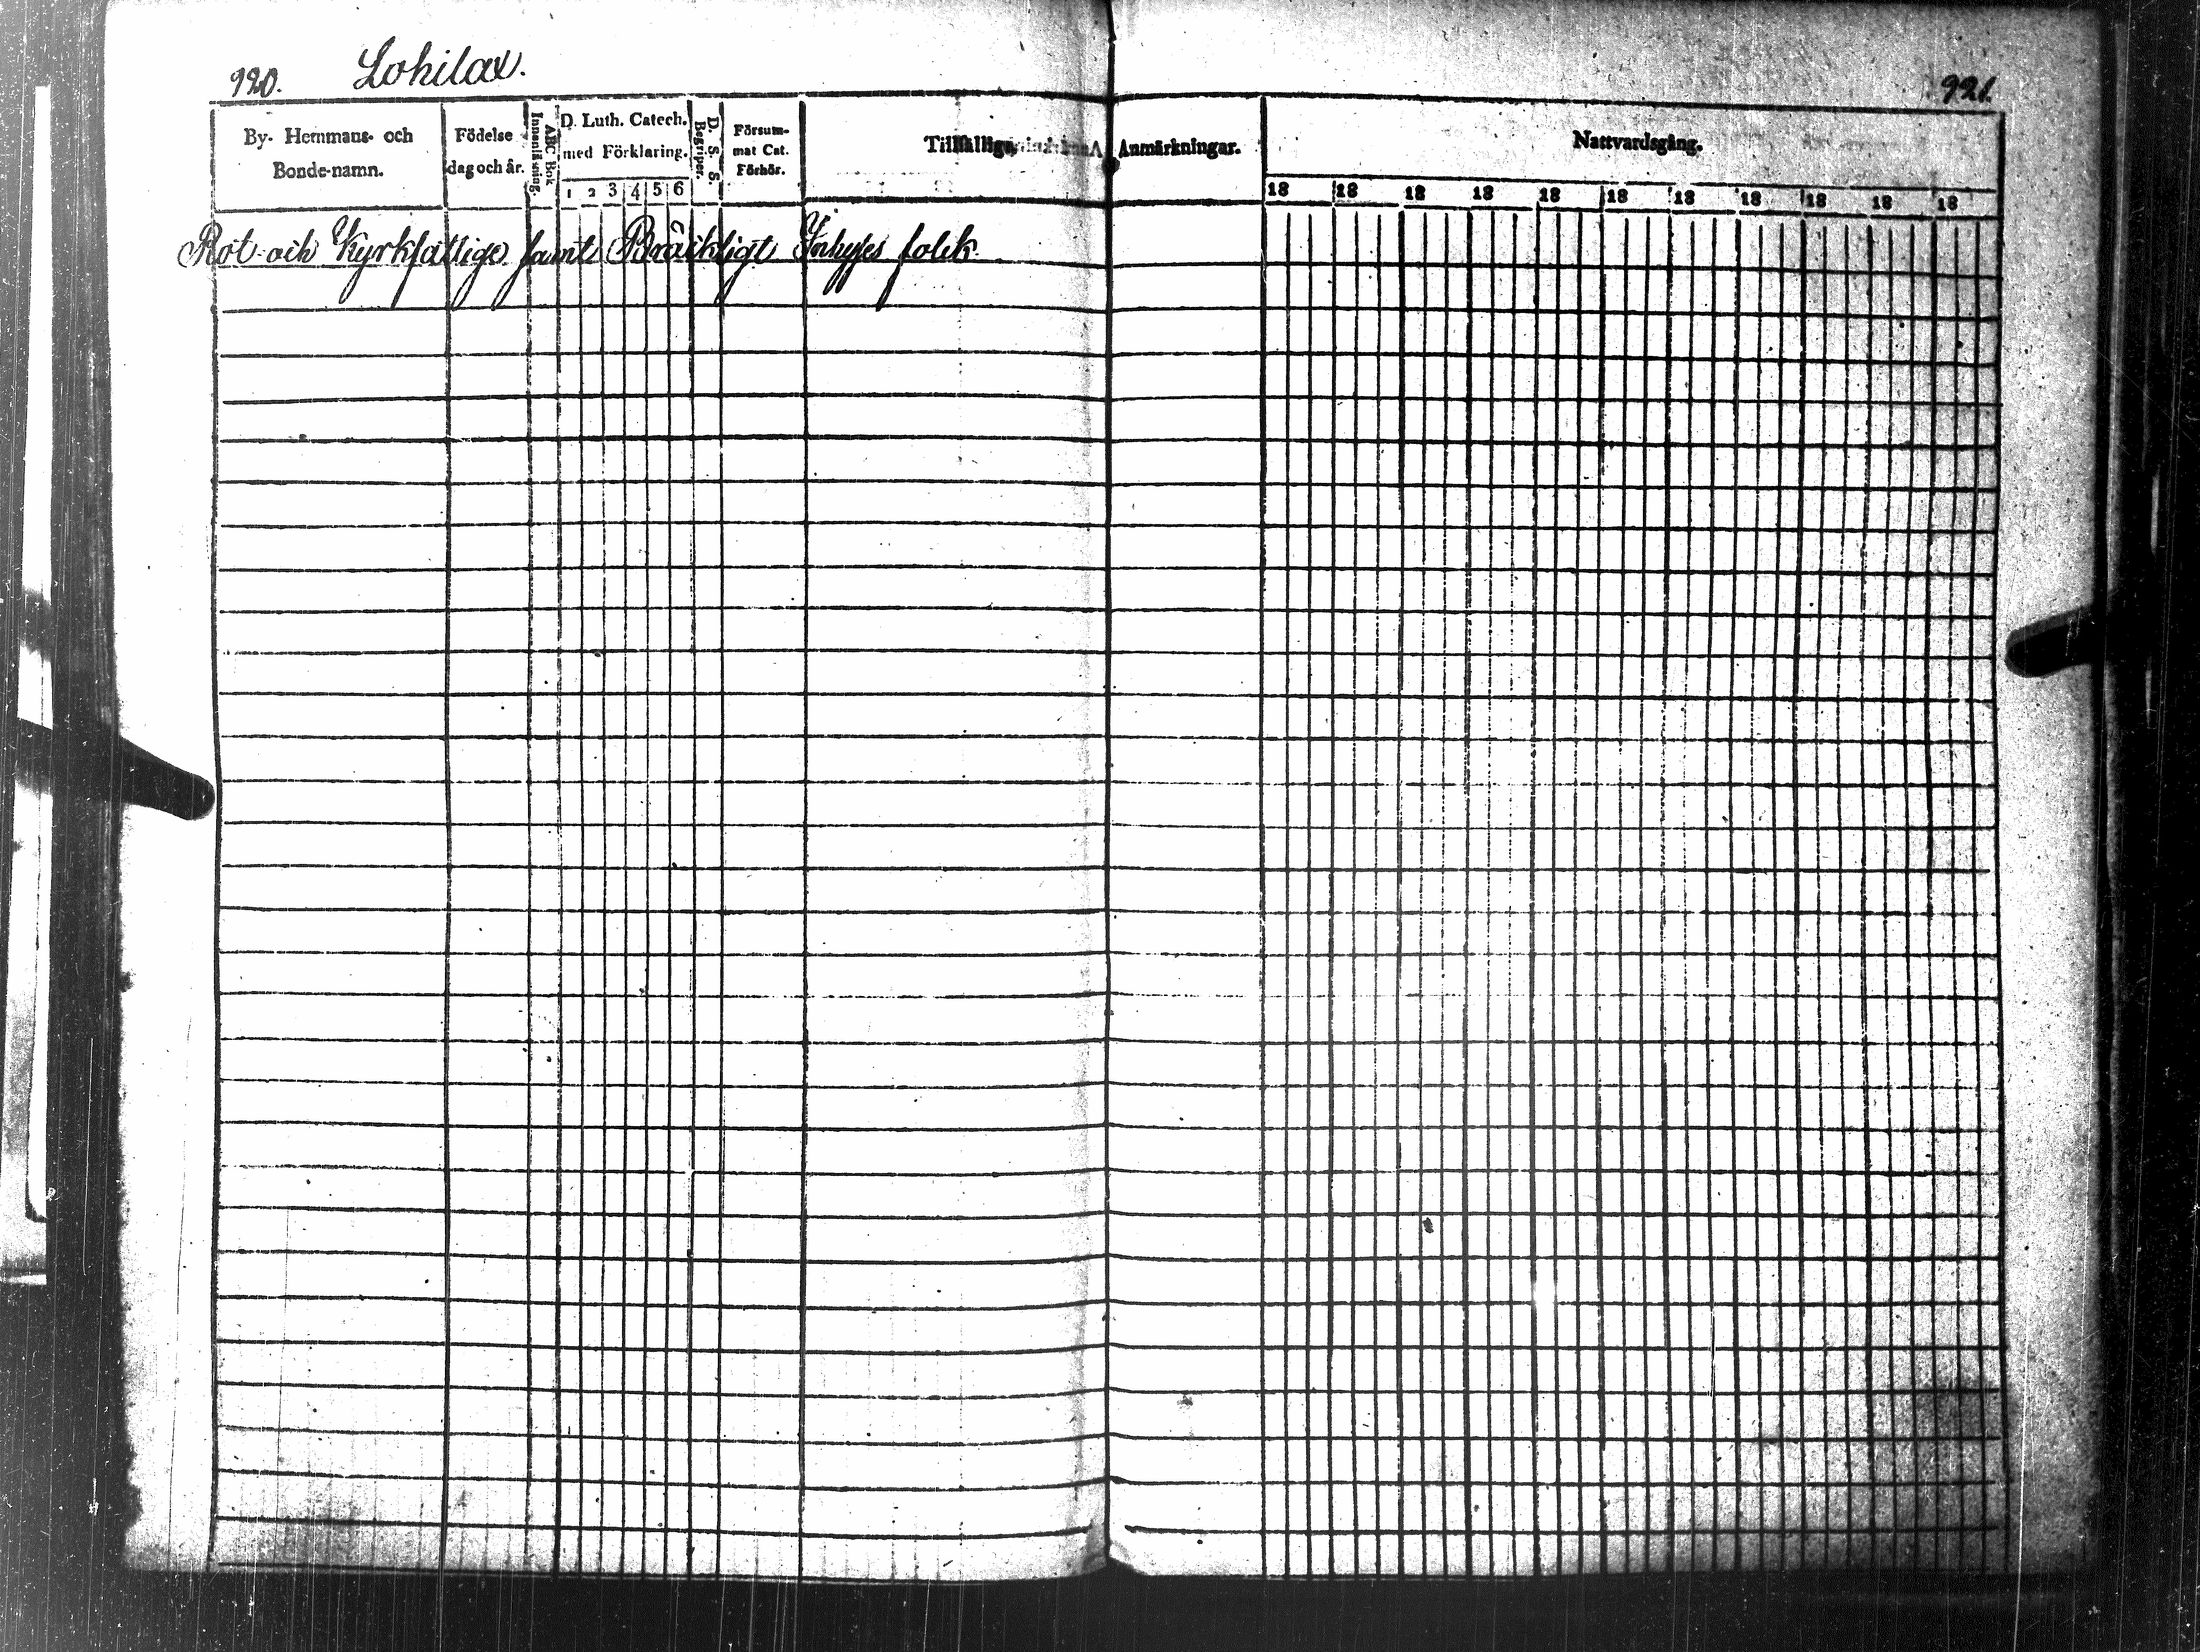 920. Lokilax.
921.
By- Hemmans- och Bonde-namn.
Födelse dag och år.
ABC Bok
Innanläsning.
D. Luth. Catech. med Förklaring.
1 2 3 4 5 6
D. S. S. Begriper.
Försum-
mat Cat.
Förhör.
Tillfällige Anmärkningar.
Nattvardsgång.
18 18 18 18 18 18 18 18 18 18 18
Rot- och Kyrkfattige samt Bräckligt Inhyses folck.